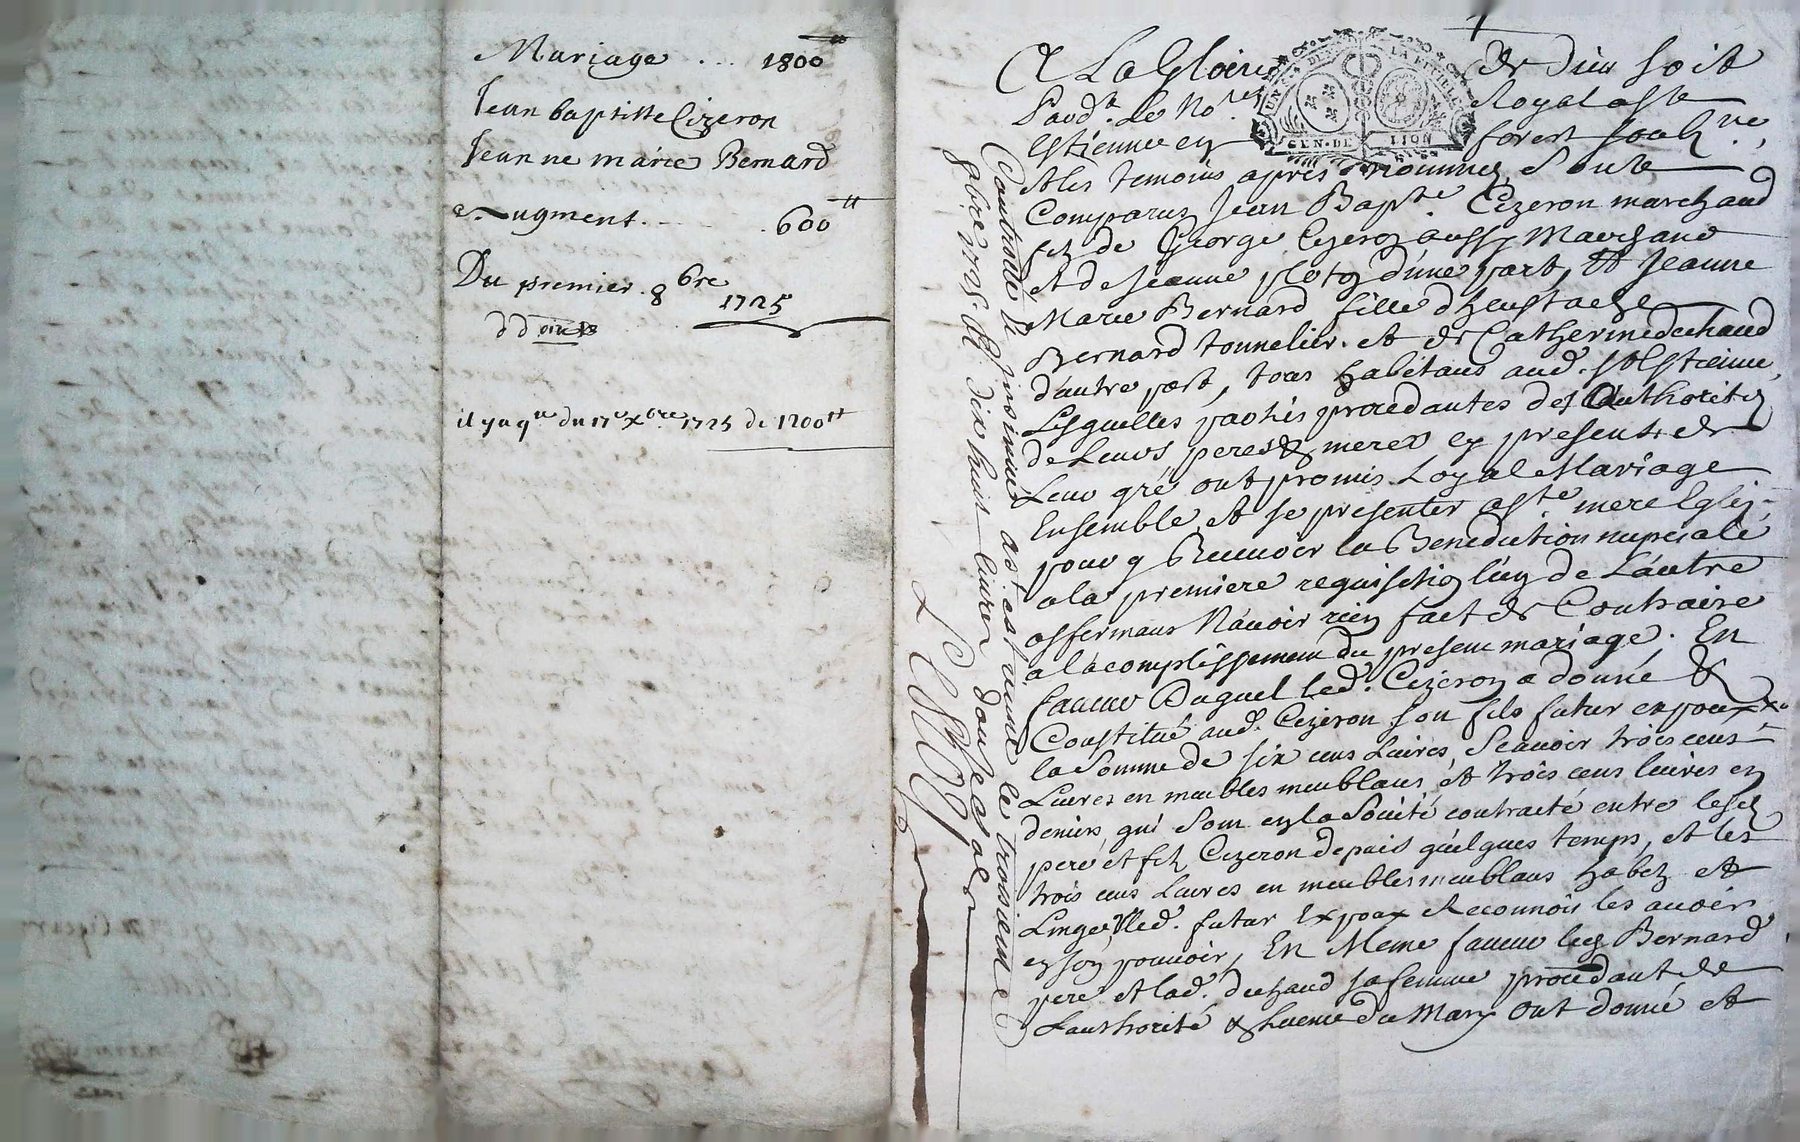 Mariage ... 1800 ₶
Jean baptiste Cizeron
Jeanne marie Bernard
augment. ... 600 ₶
Du premier 8bre
1725
il y a qce du 17e xbre 1725 de 1200 ₶
UN S DEN LA FEUILLE
GEN. DE LION
A La Gloire de dieu soit
Pard.t Le No.re Royal a St
Estienne en forest soubz.ne,
et les temoins apres nommez, sont
Comparus Jean Bap.te Cizeron marchand
filz de George Cizeron aussy Marchand
et de Jeanne ploton d'une part, et Jeanne
Marie Bernard fille d'heustache
Bernard tonnelier et de Catherine dechaud
d'autre part, tous habitans aud. St Estienne,
Lesquelles parties procedantes de l'authorité
de Leurs peres & meres cy presents de
Leur gré ont promis Loyal Mariage
Ensemble, et se presenter a S.te mere Eglize
pour y Recevoir la Benediction nuptiale
a la premiere requisition l'un de L'autre
affermans N'avoir rien fait de Contraire
a l'acomplissement du present mariage. En
faveur Duquel led. Cizeron a donné &
Constitué aud. Cizeron son fils futur expoux
la Somme de six cens Livres, Scavoir trois cens
Livres en meubles meublans, et trois cens livres en
deniers qui sont en la Société contracté entre lesd
pere et filz Cizeron depuis quelques temps, et les
trois cens Livres en meubles meublans habitz et
Linge, led. futur Expoux Reconnois les avoir
en son pouvoir, En Meme faveur lesd Bernard
pere et lad. dechaud sa femme procedant de
L'authorité & licence du Mary ont donné et
Controllé & insinué a St estienne le troisieme
9bre 1725. R. dix huit livres douse s